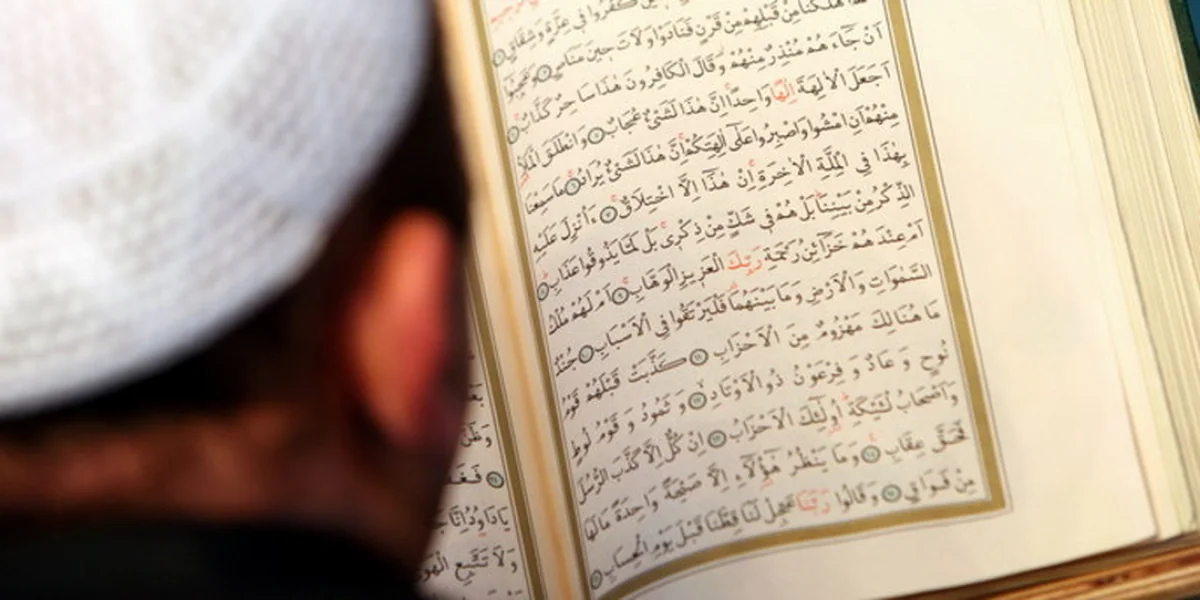 كَفَرُوا فِي عِزَّةٍ وَشِقَاقٍ
اَهْلَكْنَا مِنْ قَبْلِهِمْ مِنْ قَرْنٍ فَنَادَوْا وَلَاتَ حِينَ مَنَاصٍ وَعَجِبُوا
اَنْ جَاءَهُمْ مُنْذِرٌ مِنْهُمْ وَقَالَ الْكَافِرُونَ هٰذَا سَاحِرٌ كَذَّابٌ
اَجَعَلَ الْاٰلِهَةَ اِلٰهًا وَاحِدًا اِنَّ هٰذَا لَشَئٌ عُجَابٌ وَانْطَلَقَ الْمَلَاُ
مِنْهُمْ اَنِ امْشُوا وَاصْبِرُوا عَلٰى اٰلِهَتِكُمْ اِنَّ هٰذَا لَشَئٌ يُرَادُ مَا سَمِعْنَا
بِهٰذَا فِي الْمِلَّةِ الْاٰخِرَةِ اِنْ هٰذَا اِلَّا اخْتِلَاقٌ ءَاُنْزِلَ عَلَيْهِ
الذِّكْرُ مِنْ بَيْنِنَا بَلْ هُمْ فِي شَكٍّ مِنْ ذِكْرِى بَلْ لَمَّا يَذُوقُوا عَذَابِ
اَمْ عِنْدَهُمْ خَزَائِنُ رَحْمَةِ رَبِّكَ الْعَزِيزِ الْوَهَّابِ اَمْ لَهُمْ مُلْكُ
السَّمٰوَاتِ وَالْاَرْضِ وَمَا بَيْنَهُمَا فَلْيَرْتَقُوا فِي الْاَسْبَابِ جُنْدٌ
مَا هُنَالِكَ مَهْزُومٌ مِنَ الْاَحْزَابِ كَذَّبَتْ قَبْلَهُمْ قَوْمُ
نُوحٍ وَ عَادٌ وَ فِرْعَوْنُ ذُو الْاَوْتَادِ وَ ثَمُودُ وَ قَوْمُ لُوطٍ
وَاَصْحَابُ لْئَيْكَةِ اُولٰئِكَ الْاَحْزَابُ اِنْ كُلٌّ اِلَّا كَذَّبَ الرُّسُلَ
فَحَقَّ عِقَابِ وَمَا يَنْظُرُ هٰؤُلَاءِ اِلَّا صَيْحَةً وَاحِدَةً مَا لَهَا
مِنْ فَوَاقٍ وَقَالُوا رَبَّنَا عَجِّلْ لَنَا قِطَّنَا قَبْلَ يَوْمِ الْحِسَابِ
وَظَنَّ
يَا دَاوُدُ اِنَّا
وَلَا تَتَّبِعِ الْهَوٰى